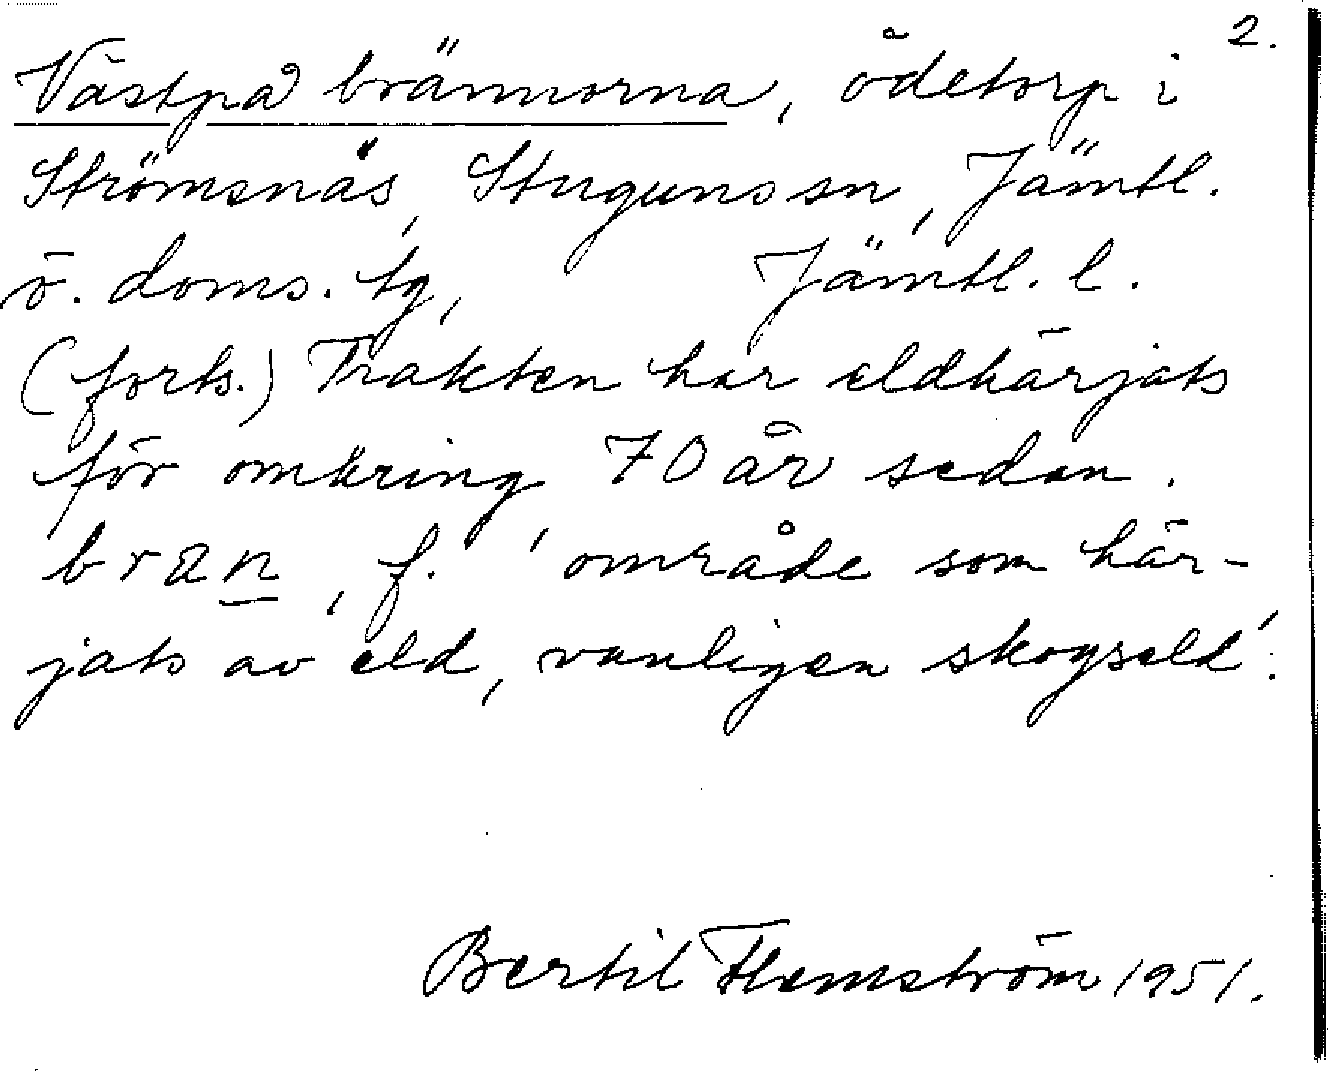 2.
Västpå brännorna, ödetorp i
Strömsnäs, Stuguns sn, Jämtl.
ö. doms. tg, Jämtl. l.
(forts.) Trakten har eldhärjats
för omkring 70 år sedan.
bran, f. 'område som här-
jats av eld, vanligen skogseld'.
Bertil Flemström 1951.